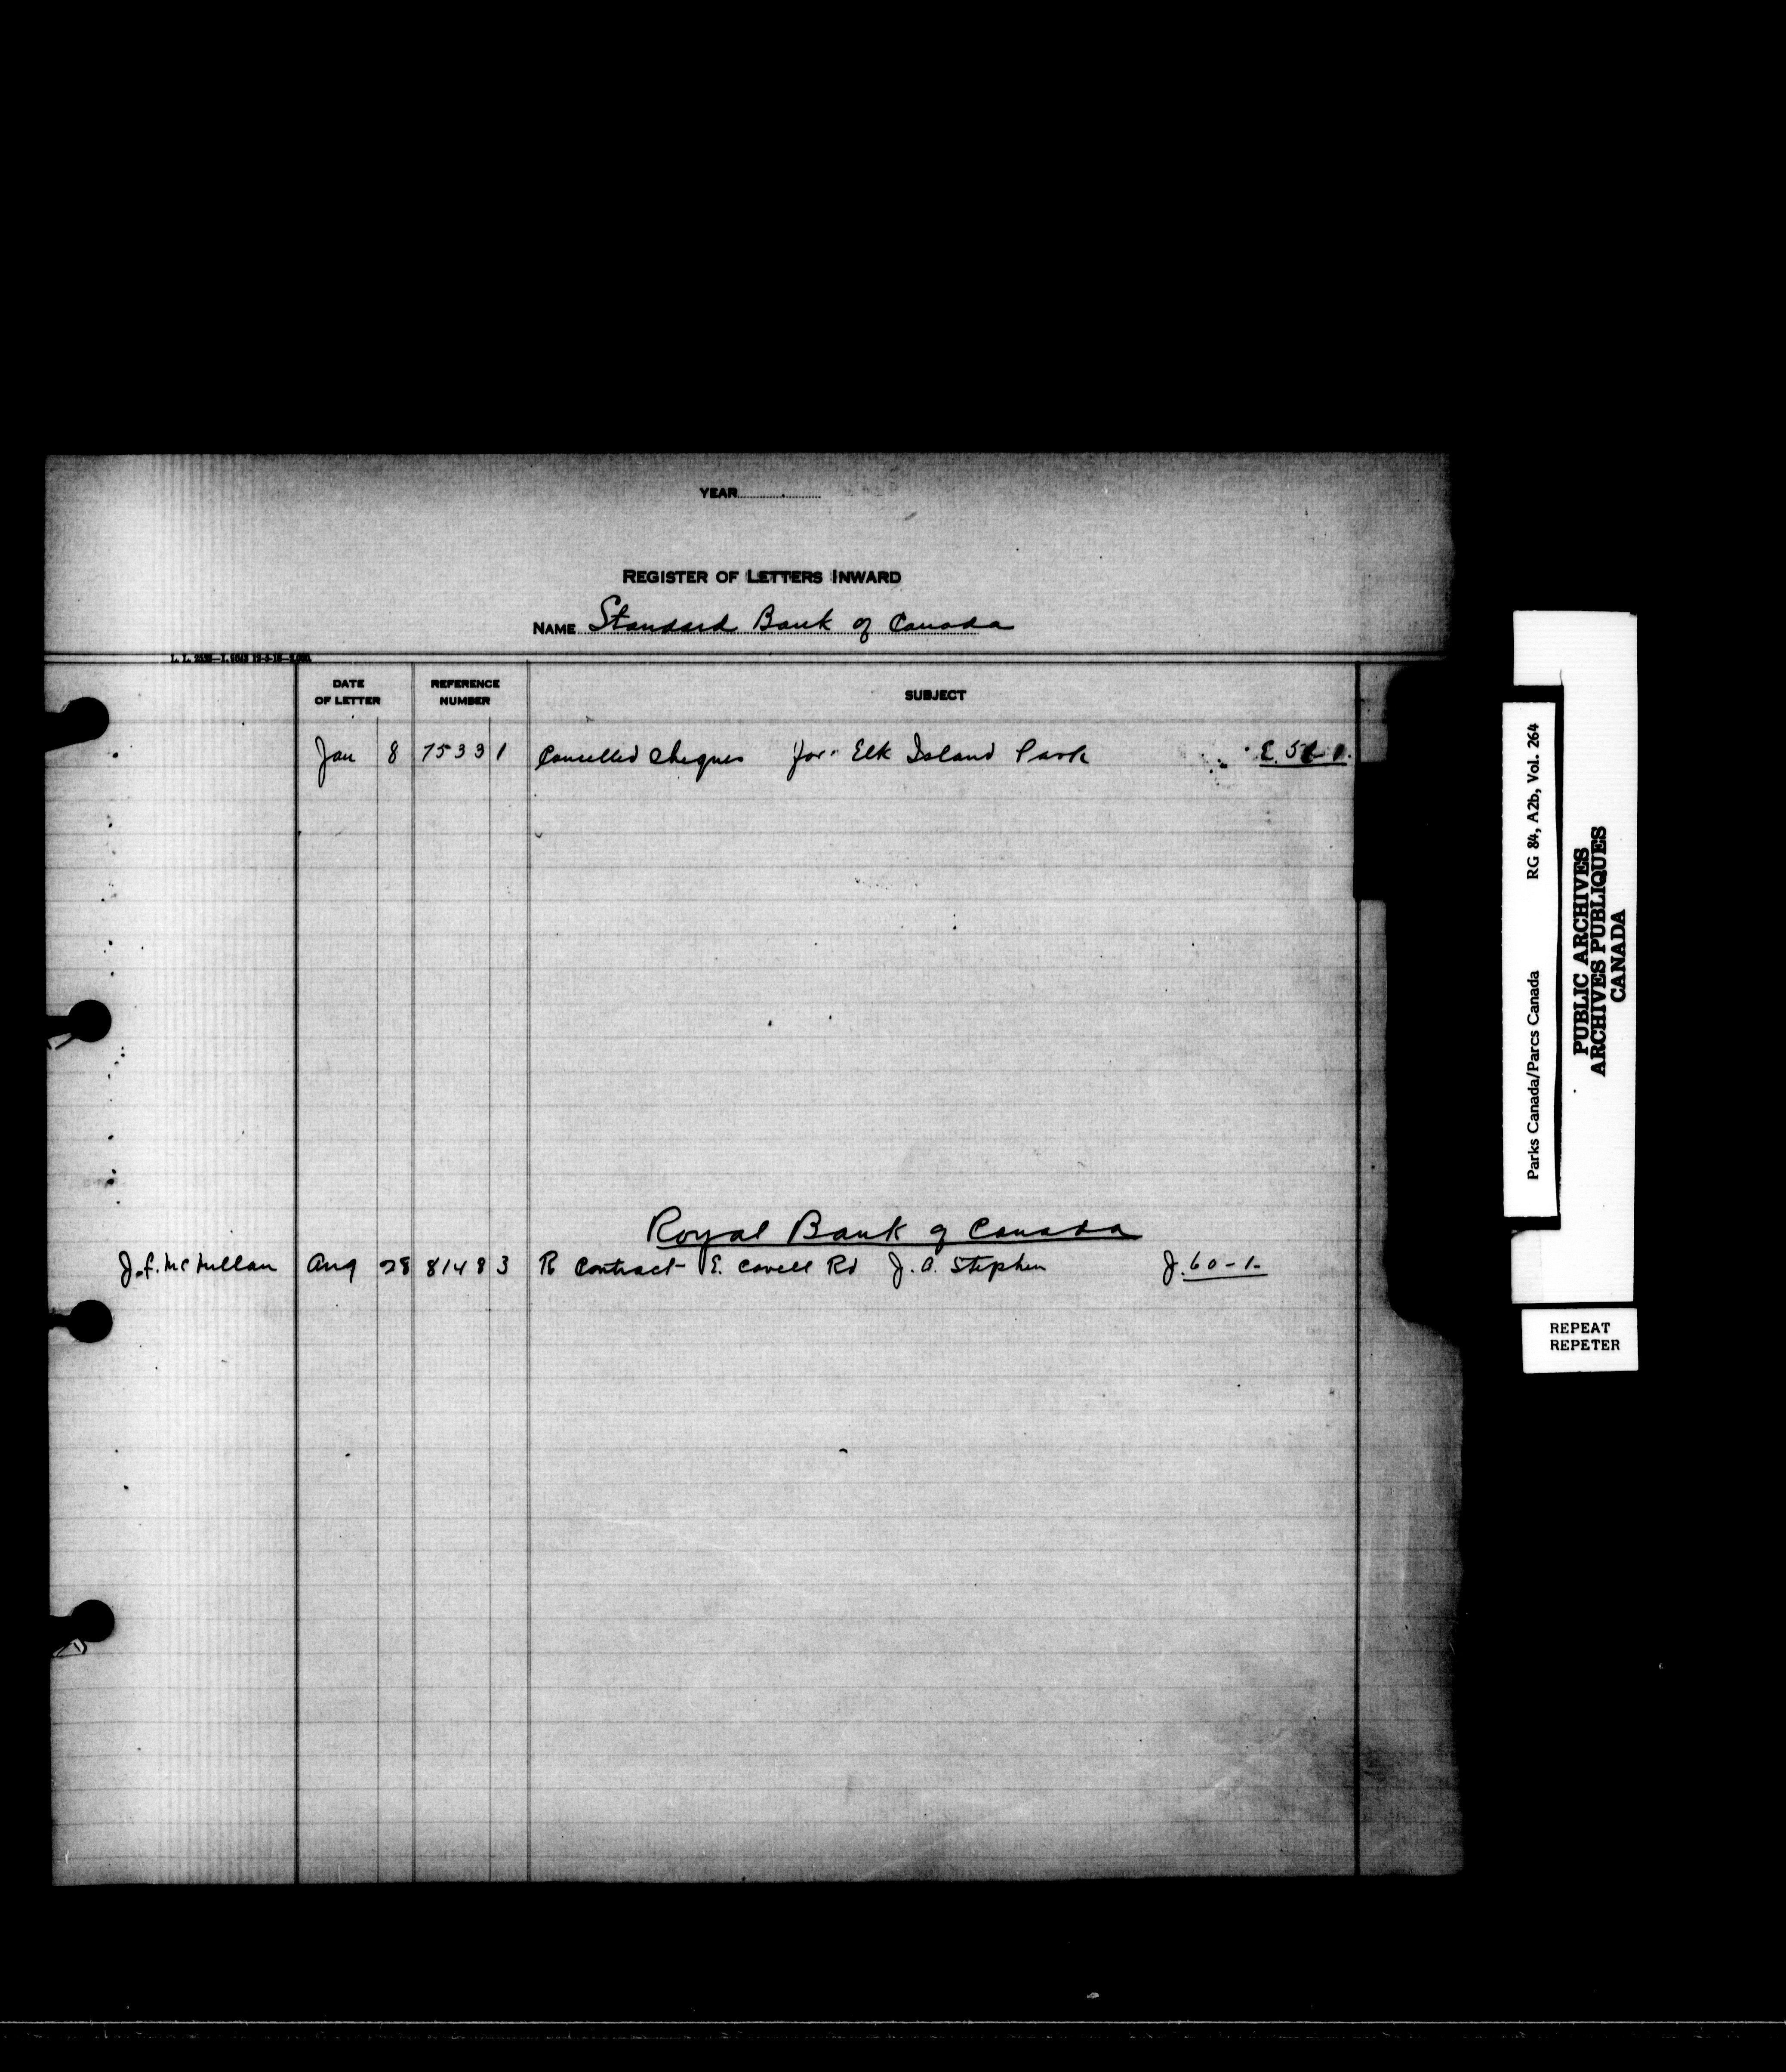 YEAR
REGISTER OF LETTERS INWARD
NAME Standard Bank of Canada
DATE OF LETTER REFERENCE NUMBER SUBJECT
Jan 8 7533 1 Cancelled Cheques for Elk Island Park
Royal Bank of Canada
J.F. McMillan Aug 28 8148 3 R Contract E. Cavell Rd J. A. Stephen J. 60-1-
Parks Canada/Parcs Canada RG 84, A2b, Vol. 264
PUBLIC ARCHIVES
ARCHIVES PUBLIQUES
CANADA
REPEAT
REPETER